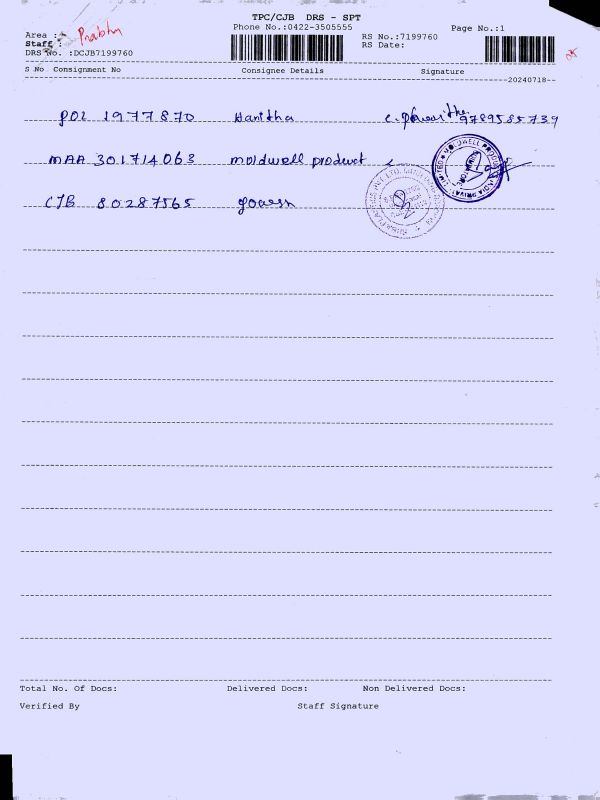 TPC/CJB DRS - SPT
Phone No.:0422-3505555
Page No.:1
Area :
Prabhu
RS No.:7199760
Staff :
RS Date:
DRS No. :DCJB7199760
S No Consignment No Consignee Details Signature
20240718
POL 1977870 Hanitha 9789585739
MAA 301714063 moldwell product
CJB 80287565
Total No. Of Docs: Delivered Docs: Non Delivered Docs:
Verified By Staff Signature